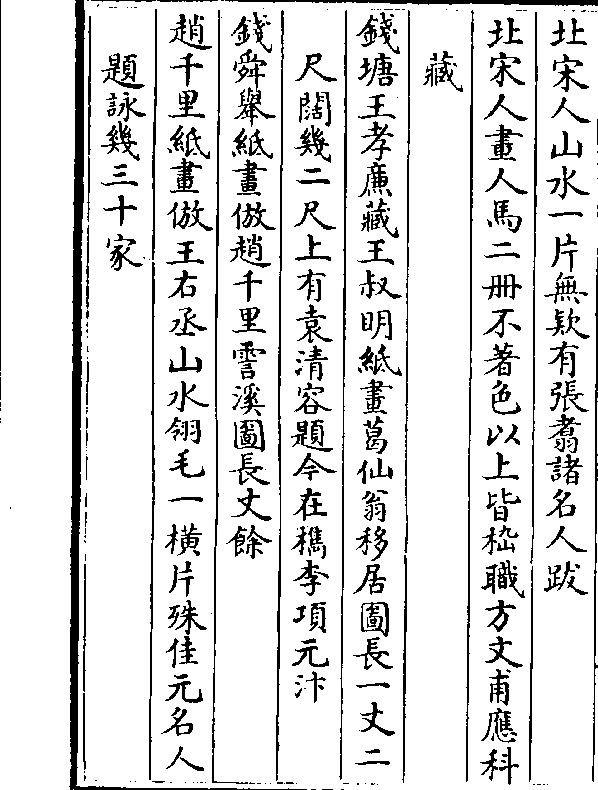 北宋人山水一片無欵有張翥諸名人跋
北宋人畫人馬二冊不著色以上皆嵇職方文甫應科
藏
錢塘王孝廉藏王叔明紙畫葛仙翁移居圖長一丈二
尺闊幾二尺上有袁清容題今在檇李項元汴
錢舜舉紙畫倣趙千里霅溪圖長丈餘
趙千里紙畫倣王右丞山水翎毛一橫片殊佳元名人
題詠幾三十家